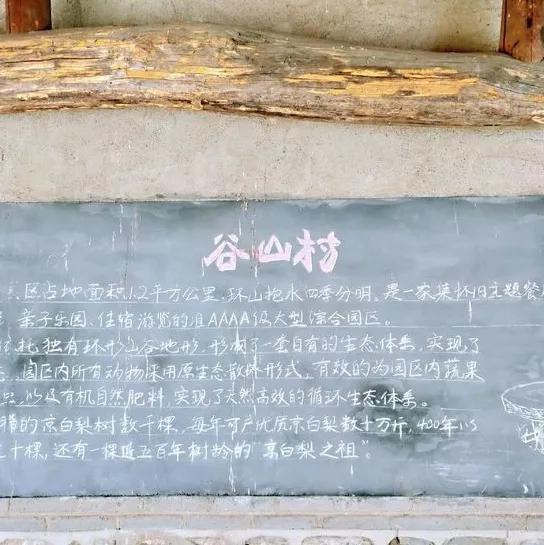 谷山村
区占地面积1.2平方公里,环山抱水四季分明,是一家集怀旧主题餐
亲子乐园、住宿游览的准AAAA级大型综合园区。
托独有环形山谷地形,形成了一套自有的生态体系,实现了
园区内所有动物采用原生态散养形式,有效的为园区内蔬果
虫,以及有机自然肥料,实现了天然高效的循环生态体系。
的京白梨树数千棵,每年可产优质京白梨数十万斤,400年以
十棵,还有一棵近五百年树龄的“京白梨之祖”。